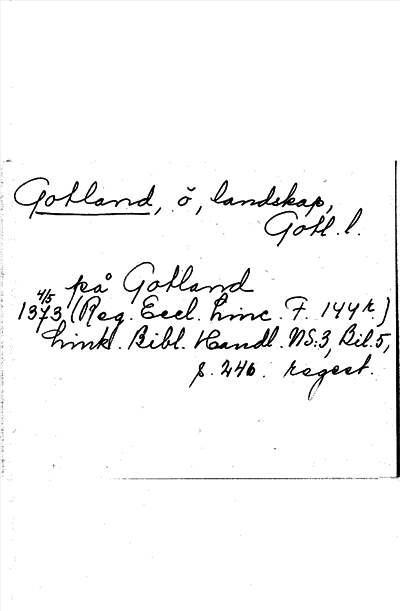 Gotland, ö, landskap,
Gotl. l.
på Gotland
4/5
1373 (Reg. Eccl. Linc. F. 144r)
Link. Bibl. Handl. NS:3, Bil.5,
s. 246. regest.